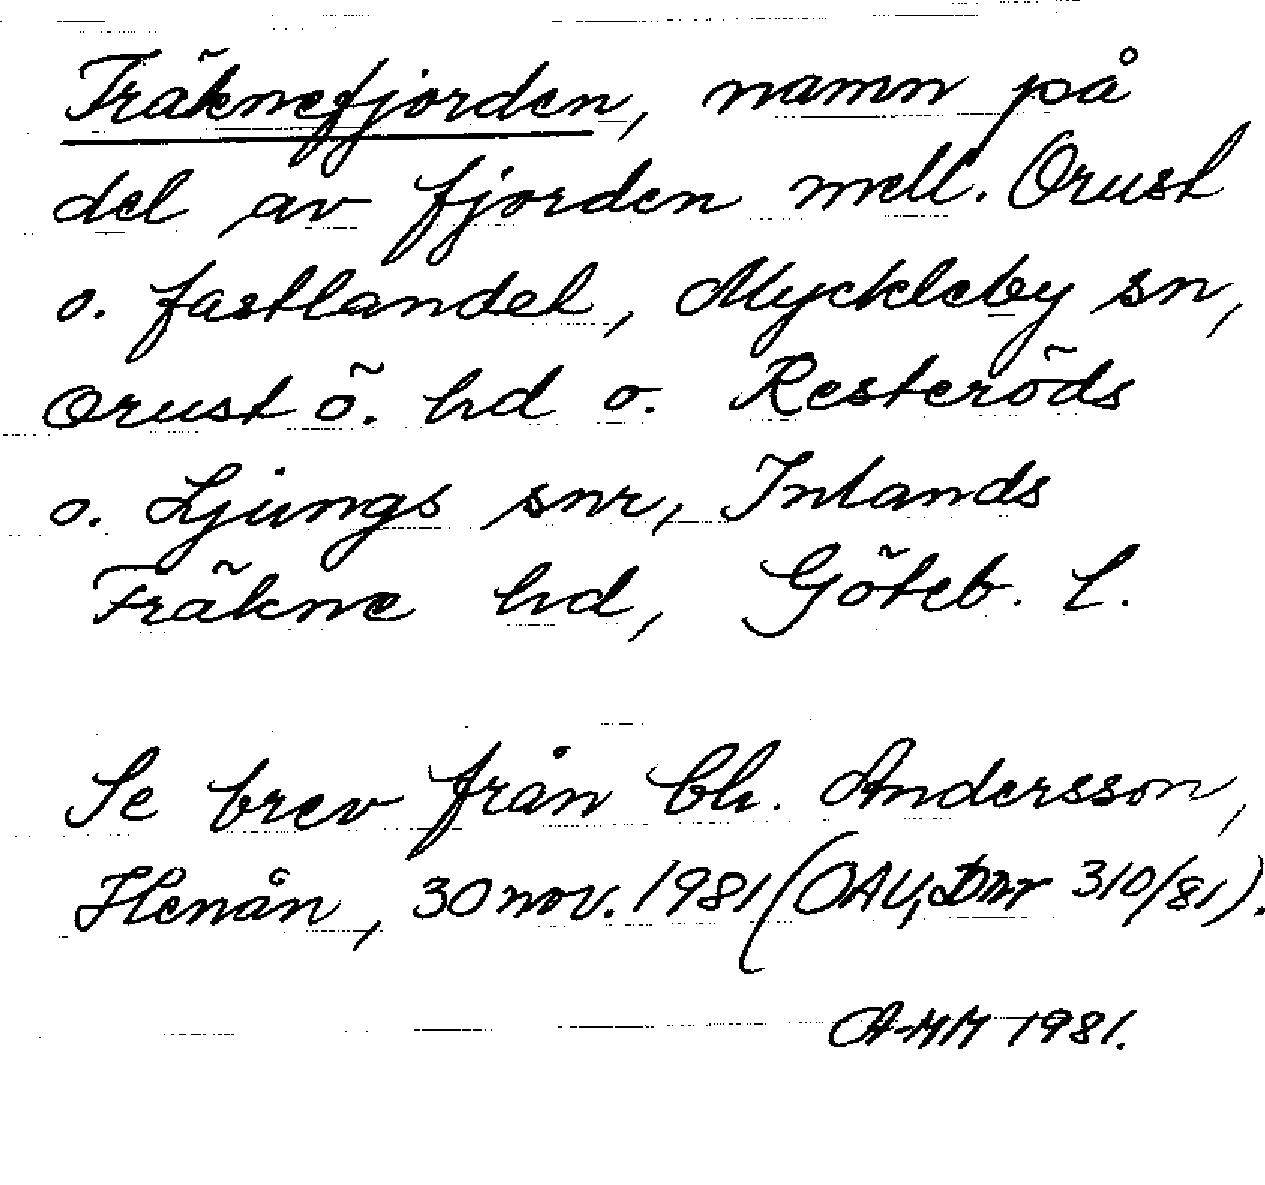 Fräknefjorden, namn på
del av fjorden mell. Orust
o. fastlandet, Myckleby sn,
Orust ö. hd o. Resteröds
o. Ljungs snr, Inlands
Fräkne hd, Göteb. l.
Se brev från Ch. Andersson,
Henån, 30 nov. 1981 (OAU, Dnr 310/81).
A-MH 1981.